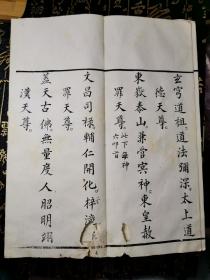 玄穹道祖。道法彌深。太上道
德天尊。
東嶽泰山。兼官冥神。東皇赦
罪天尊。
此下每神
六叩首
文昌司祿。輔仁開化。梓潼
罪天尊。
蓋天古佛。無量度人。昭明翊
漢天尊。